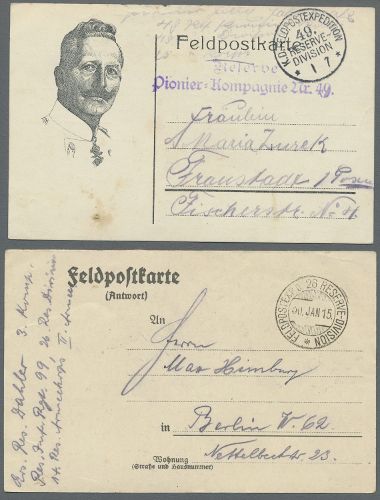 Feldpostkarte
K.D. FELDPOSTEXPEDITION
49.
RESERVE-
DIVISION
* 1 7 *
Reserve
Pionier-Kompagnie Nr. 49.
Fräulein
Maria Zurek
Fraustadt / Posen
Fischerstr. No 4
Feldpostkarte
(Antwort)
FELDPOSTEXP. D. 26 RESERVE-DIVISION
30. JAN 15
An
Herrn
Max Himburg
in Berlin W. 62
Nettelbeckstr 23.
Wohnung
(Straße und Hausnummer)
Ers. Res. Dahler 3. Komp.
Res. Inf. Rgt. 99, 26 Res. Division
14 Res. Armeekorps II. Armee